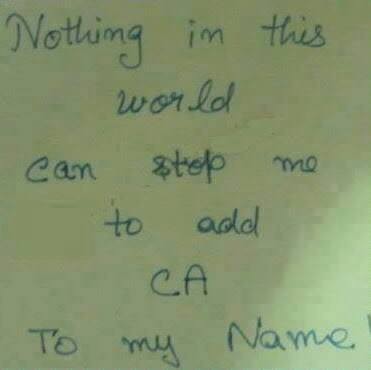 Nothing in this
world
can stop me
to add
CA
To my Name!